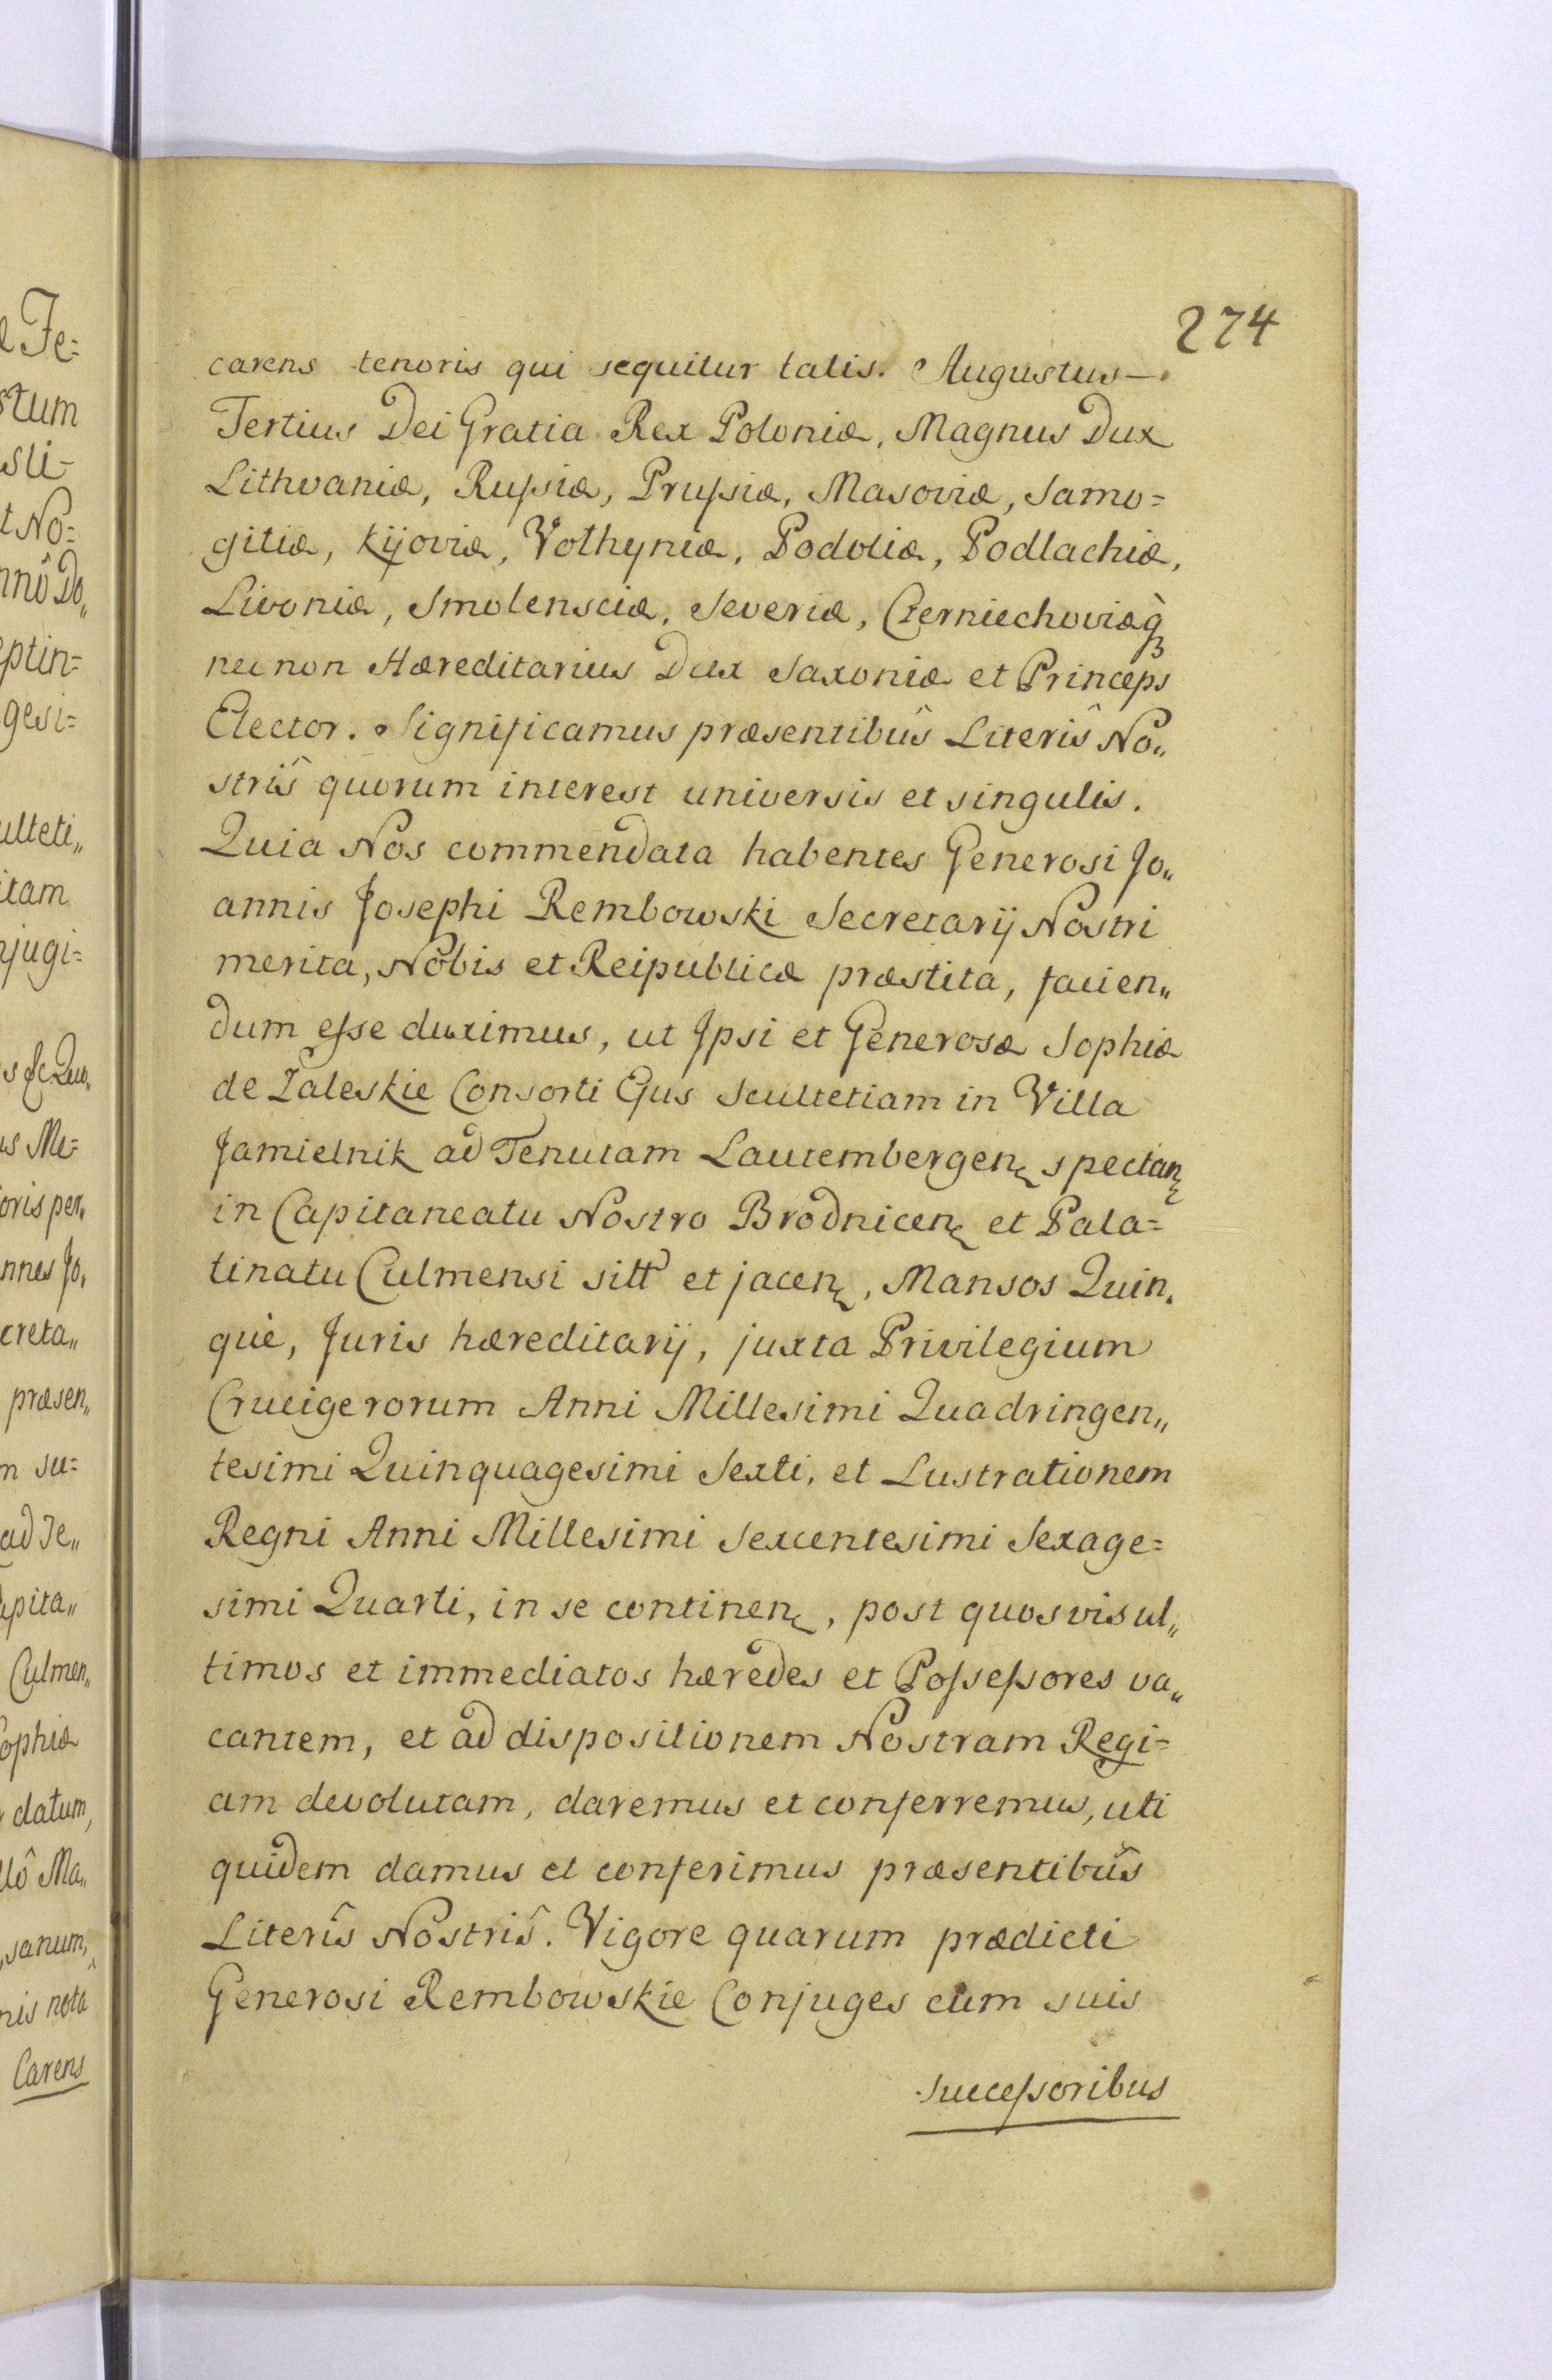 274
carens tenoris qui sequitur talis. Augustus —
Tertius Dei Gratia Rex Poloniæ, Magnus Dux
Lithvaniæ, Ruſsiæ, Pruſsiæ, Masoviæ, Samo=
gitiæ, Kijoviæ, Volhyniæ, Podoliæ, Podlachiæ,
Livoniæ, Smolensciæ, Severiæ, Czerniechoviæq̀ꝫ
necnon Hæreditarius Dux Saxoniæ et Princeps
Elector. Significamus præsentibûs Literîs No„
strîs quorum interest universis et singulis.
Quia Nos commendata habentes Generosi Jo„
annis Josephi Rembowski Secretarij Nostri
merita, Nobis et Reipublicæ præstita, facien„
dum eſse duximus, ut Ipsi et Generosæ Sophiæ
de Zaleskie Consorti Ejus Scultetiam in Villa
Jamielnik ad Tenutam Lautembergenꝫ spectanꝫ
in Capitaneatu Nostro Brodnicenꝫ et Pala=
tinatu Culmensi sitt et jacenꝫ, Mansos Quin„
què, Juris hæreditarij, juxta Privilegium
Crucigerorum Anni Millesimi Quadringen„
tesimi Quinquagesimi Sexti, et Lustrationem
Regni Anni Millesimi Sexcentesimi Sexage=
simi Quarti, in se continenꝫ, post quosvis ul„
timos et immediatos hæredes et Poſseſsores va„
cantem, et ad dispositionem Nostram Regi=
am devolutam, daremus et conferremus, uti
quidem damus et conferimus præsentibûs
Literîs Nostrîs. Vigore quarum prædicti
Generosi Rembowskie Conjuges cum suis
succeſsoribus